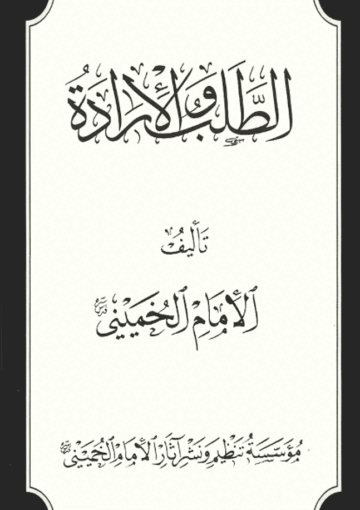 الطَّلَبُ وَالْإِرَادَةُ
تَأْلِيفُ
الْإِمَامِ الْخُمَيْنِي
مُؤَسَّسَةُ تَنْظِيمِ وَنَشْرِ آثَارِ الْإِمَامِ الْخُمَيْنِي